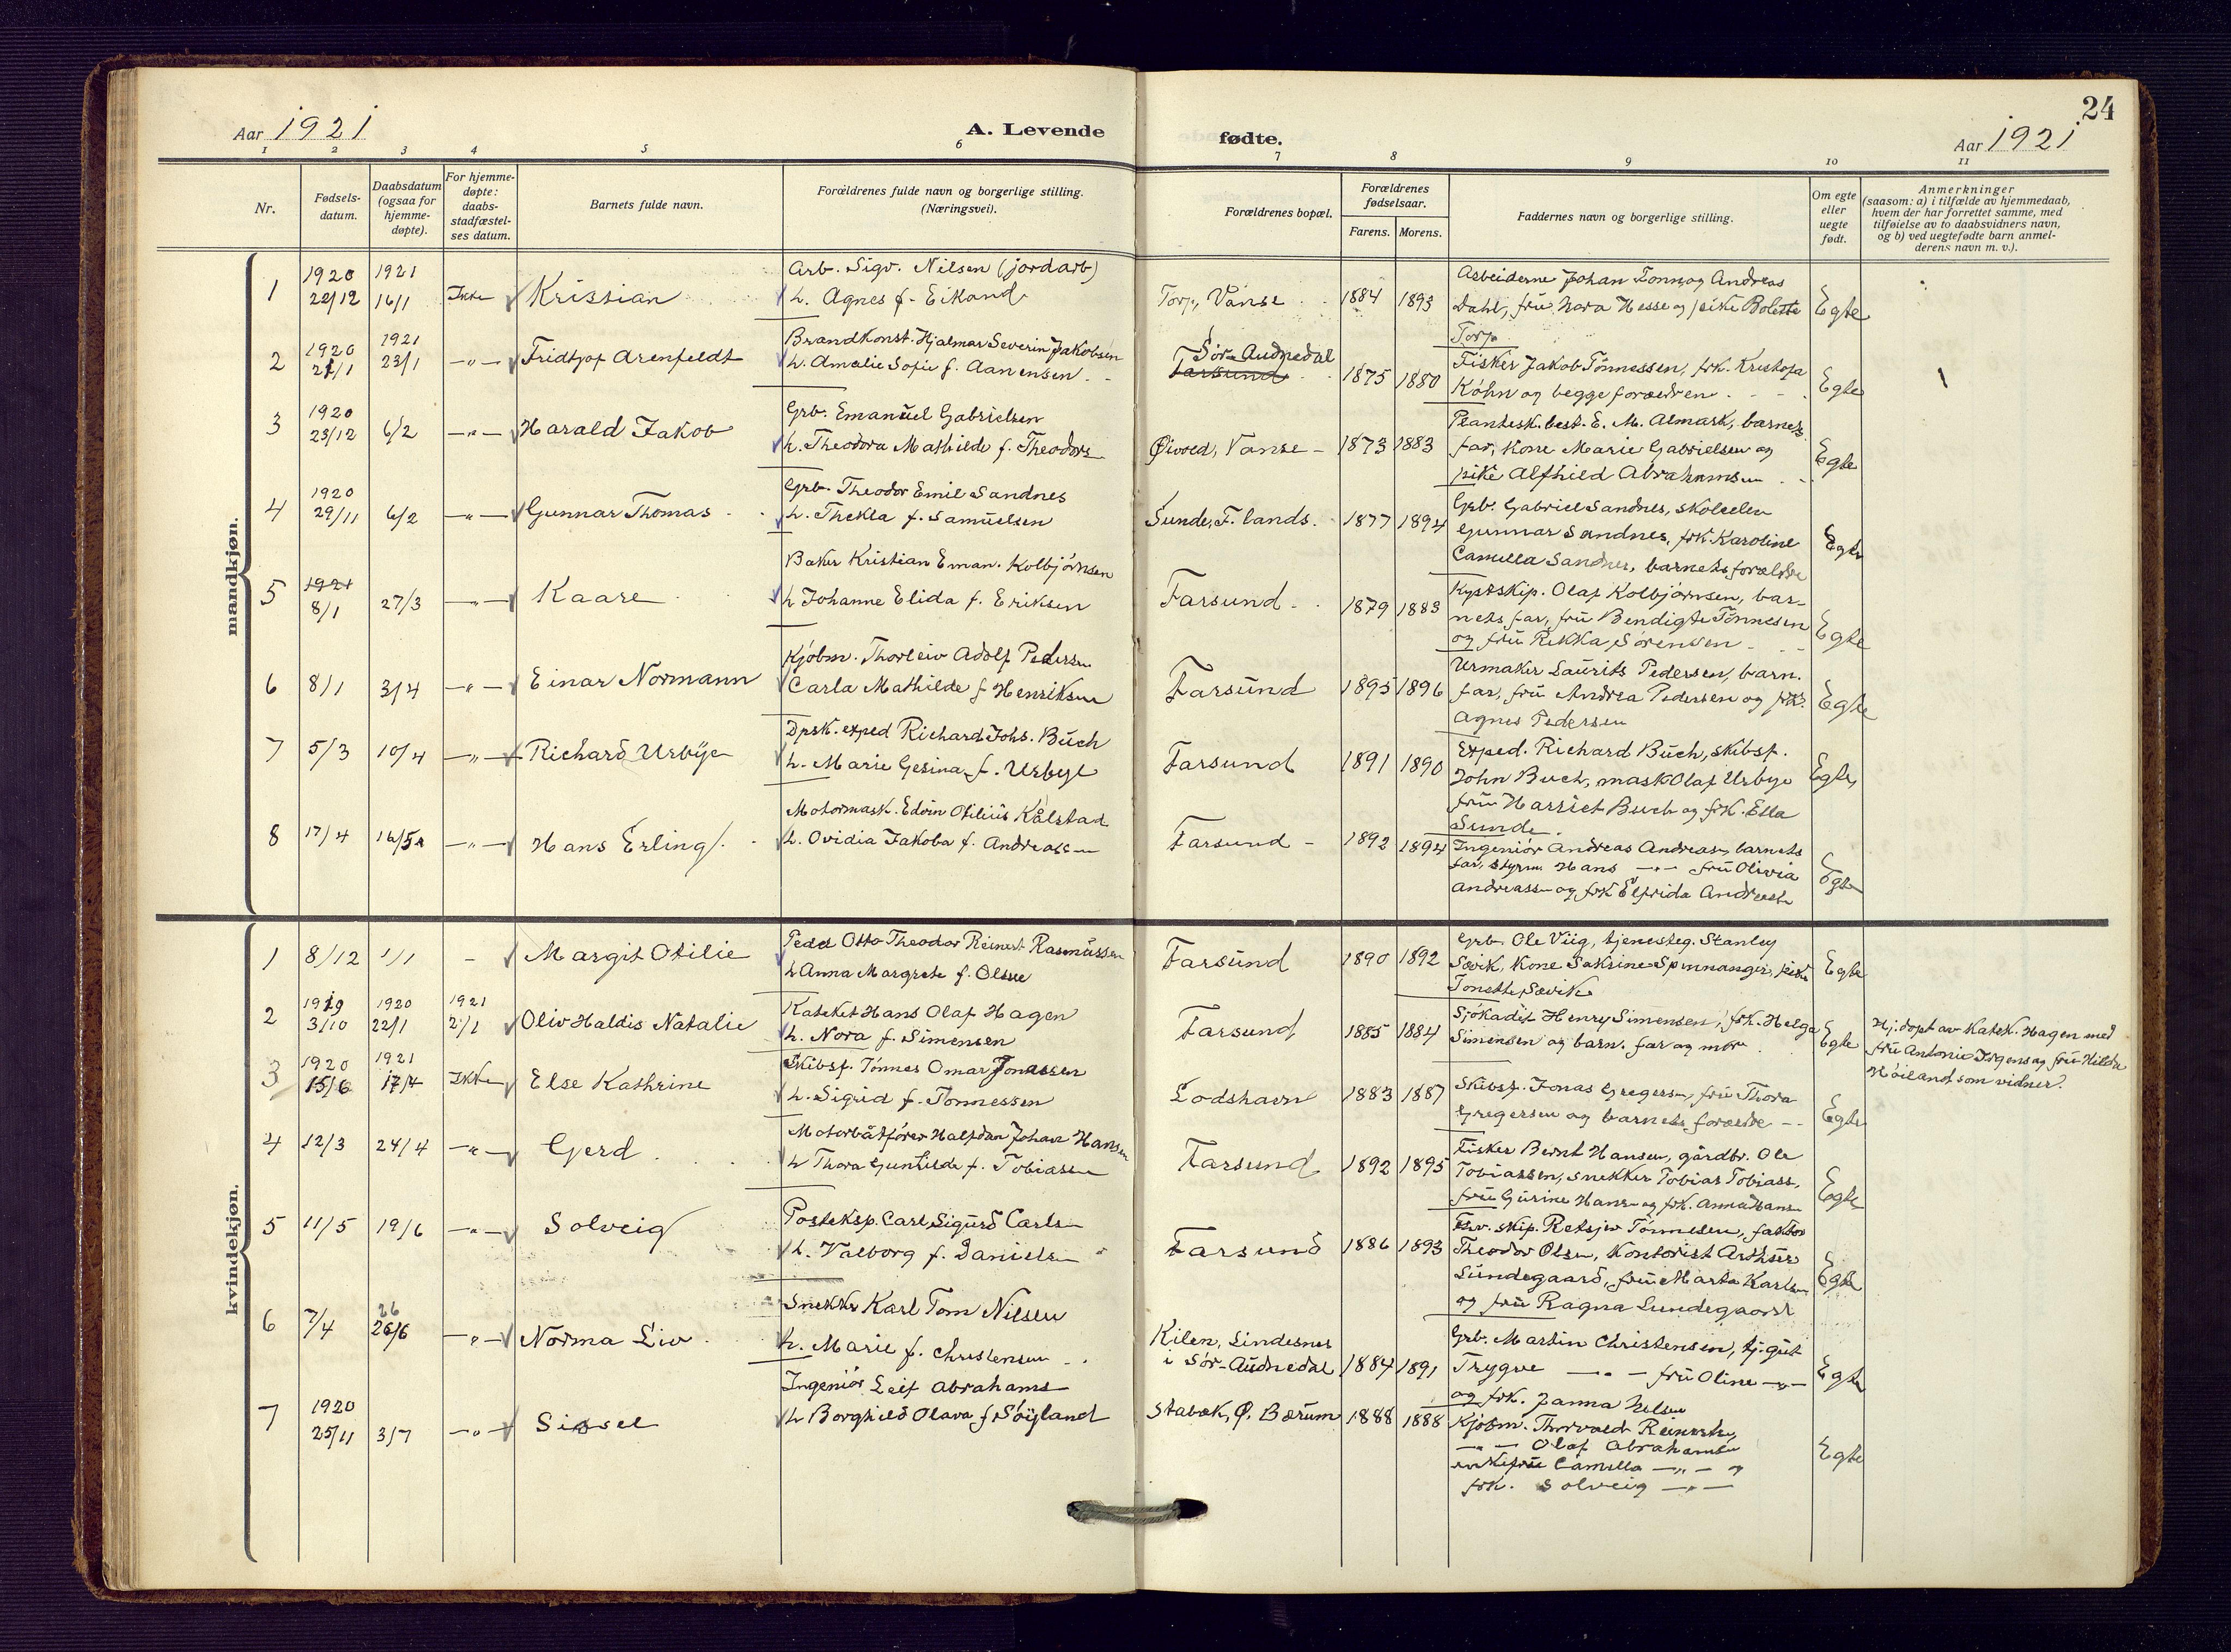 24
Aar 1921
A. Levende
fødte.
Aar 1921
1 2 3 4 5 6 7 8 9 10 11
Nr.
Fødsels-
datum.
Daabsdatum
(ogsaa for
hjemme-
døpte).
For hjemme-
døpte:
daabs-
stadfæstel-
ses datum.
Barnets fulde navn.
Forældrenes fulde navn og borgerlige stilling.
(Næringsvei).
Forældrenes bopæl.
Forældrenes
fødselsaar.
Farens. Morens.
Faddernes navn og borgerlige stilling.
Om egte
eller
uegte
født.
Anmerkninger
(saasom: a) i tilfælde av hjemmedaab,
hvem der har forrettet samme, med
tilføielse av to daabsvidners navn,
og b) ved uegtefødte barn anmel-
derens navn m. v.).
mandkjøn.
1
1920
22/12
1921
16/1
Ikke
Kristian
Arb. Sigv. Nilsen (jordarb)
h. Agnes f. Eikand
Torp, Vanse
1884 1893
Arbeiderne Johan Tonn og Andreas
Dahl, frü Nora Hesse og pike Bolette
Torp
Egte
2
1920
21/1
1921
23/1
-"-
Fridtjof Arenfeldt
Brandkonst. Hjalmar Severin Jakobsen
h. Amalie Sofie f. Aanensen
Sør-Audnedal
Farsund
1875 1880
Fisker Jakob Tönnessen, frk. Kristofa
Köhn og begge forældren
Egte
3
1920
23/12
6/2
-"-
Harald Jakob
Grb. Emanüel Gabrielsen
h. Theodora Mathilde f. Theodors
Øivold, Vanse
1873 1883
Plantesk.best. E. M. Almark, barnets
far, Kone Marie Gabrielsen og
pike Alfhild Abrahamsen
Egte
4
1920
29/11
6/2
-"-
Gunnar Thomas
Grb. Theodor Emil Sandnes
h. Thekla f. Samüelsen
Sunde, F. lands.
1877 1894
Grb. Gabriel Sandnes, skoleelev
Gunnar Sandnes, frk. Karoline
Camilla Sandnes, barnets forældre
Egte
5
1921
8/1
27/3
-"-
Kaare
Baker Kristian Eman. Kolbjörnsen
h Johanne Elida f. Eriksen
Farsund
1879 1883
Kystskip. Olaf Kolbjörnsen, bar-
nets far, frü Bendigte Tönnesen
og frü Rekka Sörensen
Egte
6
8/1
3/4
-"-
Einar Normann
Kjöbm. Thorleiv Adolf Pedersen
Carla Mathilde f Henriksen
Farsünd
1895 1896
Urmaker Laurits Pedersen, barn.
far, frü Andrea Pedersen og frk.
Agnes Pedersen
Egte
7
5/3
10/4
-"-
Richard Urbÿe
Dpsk. exped Richard Johs. Büch
h. Marie Gesina f. Urbye
Farsund
1891 1890
Exped. Richard Büch, skibsf.
John Buch, mask Olaf Urbye
frü Harriet Buch og frk. Ella
Sunde
Egte
8
17/4
16/5
-"-
Hans Erling
Motormask. Edvin Otilius Kålstad
h. Ovidia Jakoba f. Andreassen
Farsund
1892 1894
Ingeniör Andreas Andreas, barnets
far, styrm. Hans -"- frü Olivia
Andreassen og frk Elfrida Andreassen
Egte
kvindekjøn.
1
8/12
1/1
-
Margit Otilie
Otto Theodor Reinert Rasmüssen
h Anna Margrete f. Olsen
Farsünd
1890 1892
Grb. Ole Viig, tjenesteg. Stanley
Sævik, Kone Sakrine Spinnanger, pike
Tonette Sævik
Egte
2
1919
3/10
1920
22/1
1921
2/1
Oliv Haldis Natalie
Kateket Hans Olaf Hagen
h. Nora f. Simensen
Farsund
1885 1884
Sjökadet Henry Simensen, frk. Helga
Simensen og barn. far og mor
Egte
Hj. döpt av Katek. Hagen med
frü Antonie Jrgens og frü Hilda
Höiland som vidner.
3
1920
15/6
1921
17/4
Ikke
Else Kathrine
Skibsf. Tönnes Omar Jonassen
h. Sigrid f. Tönnessen
Lodshavn
1883 1887
Skibsf. Jonas Gregersen, frü Thora
Gregersen og barnets forældre
Egte
4
12/3
24/4
-"-
Gerd
Motorbåtförer Halfdan Johan Hansen
h Thora Gunhilde f. Tobiassen
Farsund
1892 1895
Fisker Bernt Hansen, gårdbr. Ole
Tobiassen, snekker Tobias Tobiass,
frü Gürine Hansen og frk. Anna Hansen
Egte
5
11/5
19/6
-"-
Solveig
Posteksp. Carl Sigurd Carlsen
h. Valborg f. Danielsen
Farsund
1886 1893
skip. Retsjer Tönnesen, faktor
Theodor Olsen, Kontorist Arthür
Lündegaard, frü Marta Karlsen
og frü Ragna Lundegaard
Egte
6
7/4
26
26/6
-"-
Norma Liv
Snekker Karl Tom Nilsen
h. Marie f. Christensen
Kilen, Lindesnes
i Sör-Aüdnedal
1884 1891
Grb. Martin Christensen, tj. güt
Trygve -"- frü Oline -"-
og frk. Janna Nelsen
Egte
7
1920
25/11
3/7
-"-
Sissel
Ingeniör Leif Abrahamsen
h Borghild Olava f. Söyland
Stabæk, Ø. Bærum
1888 1888
Kjöbm. Thorvald Reinertsen,
-"- Olaf Abrahamsen
enkefrue Camilla -"- og
frk. Solveig -"-
Egte